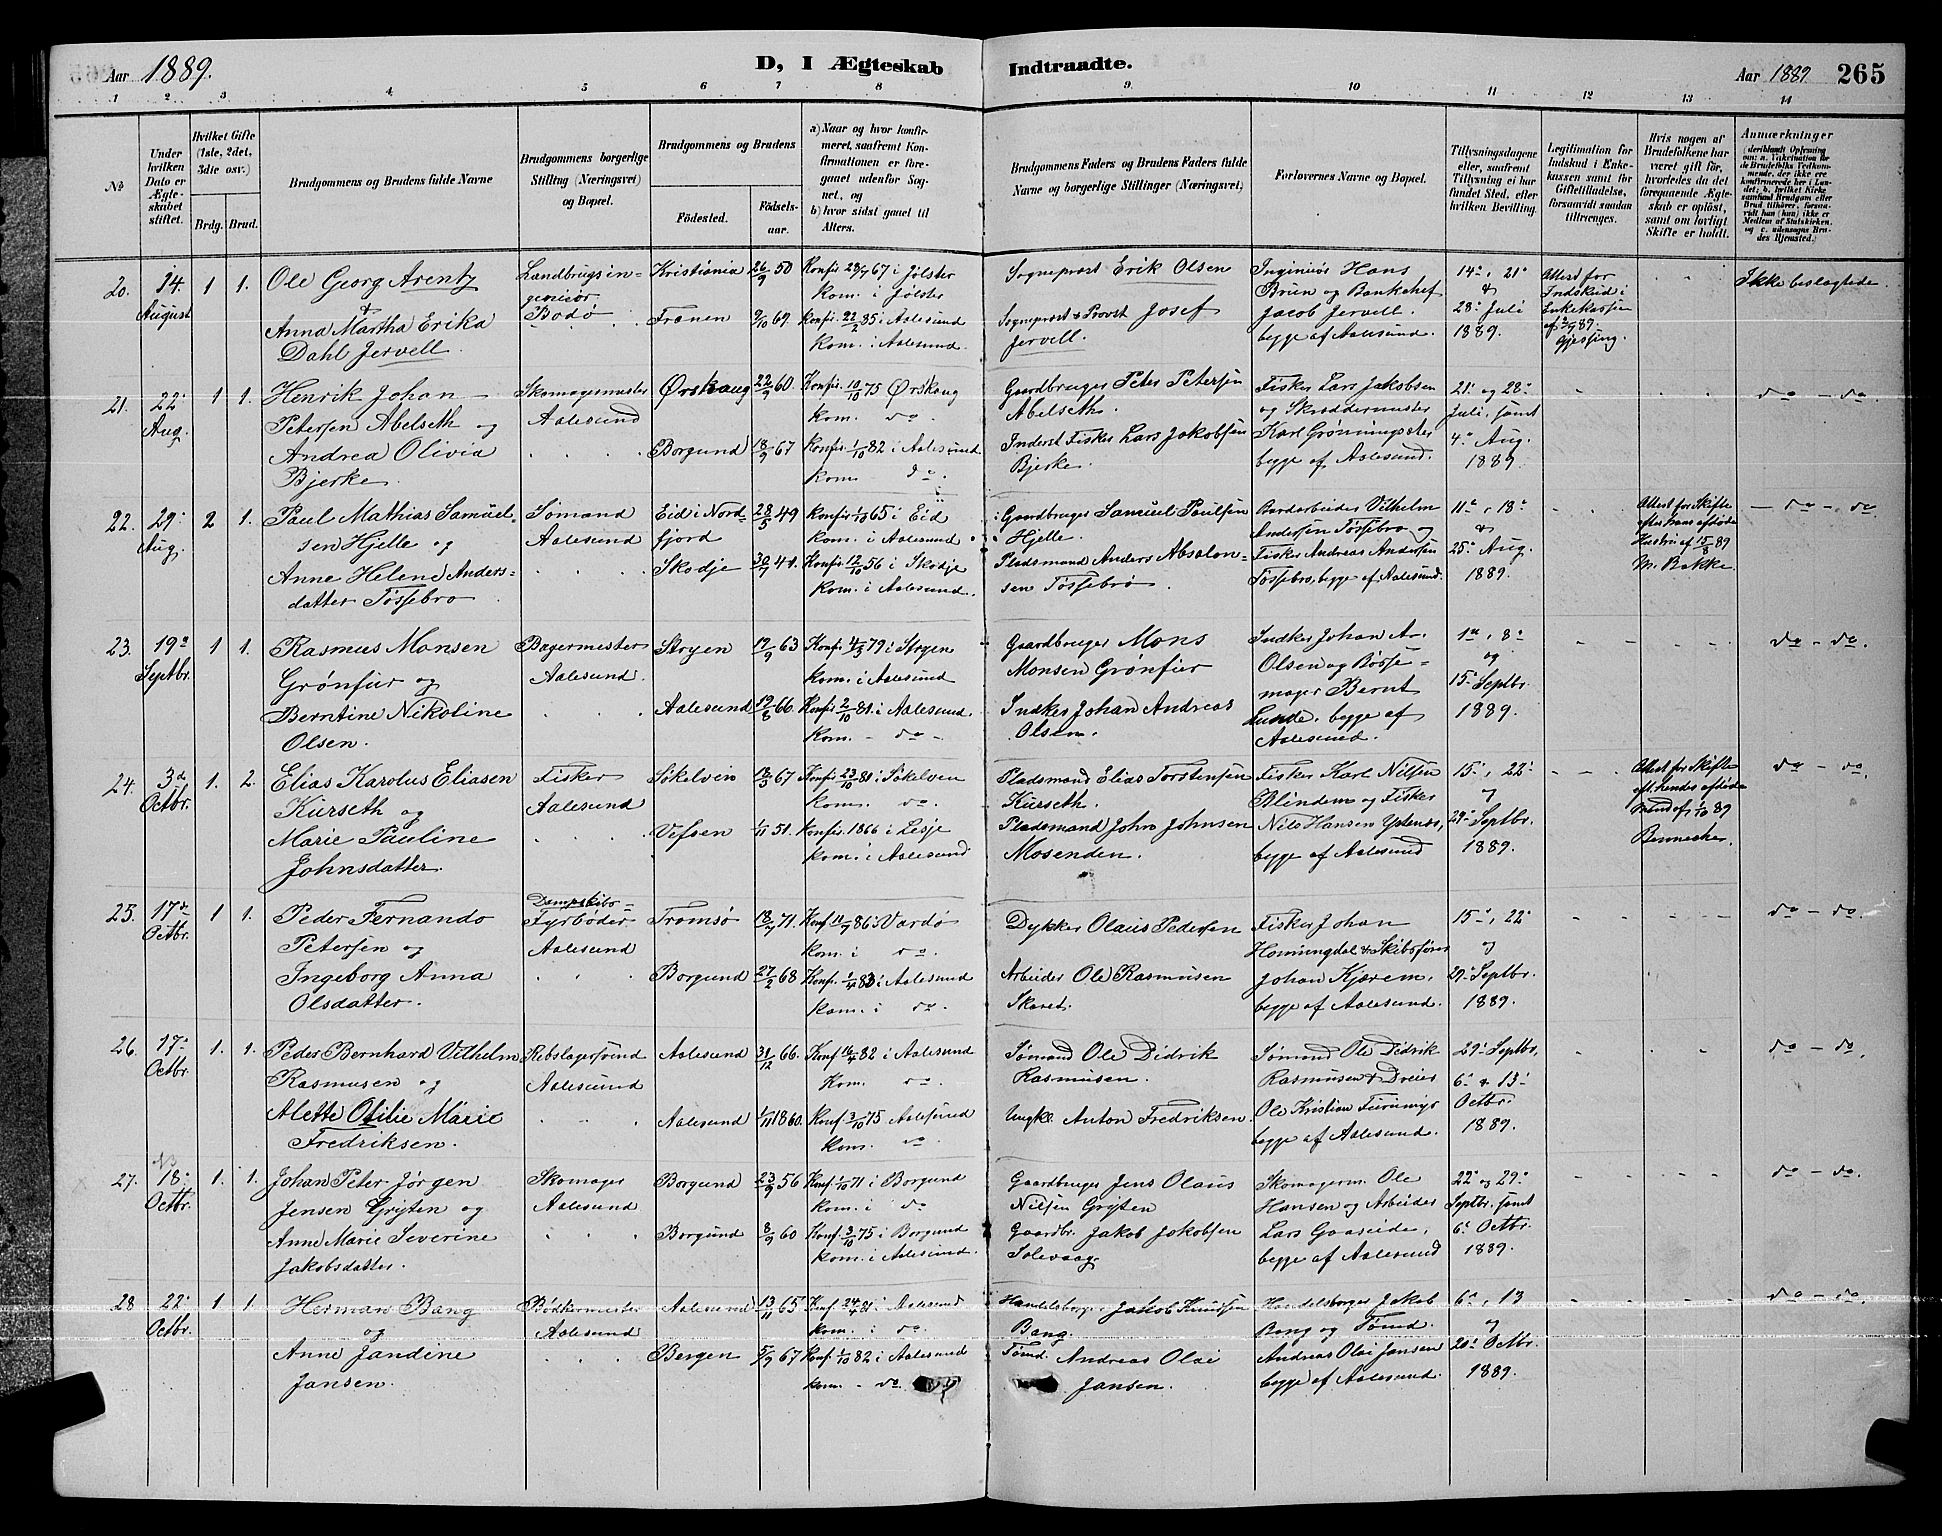 Aar 1889.
D, I Ægteskab
Indtraadte.
Aar 1889.
265
1 2 3 4 5 6 7 8 9 10 11 12 13 14
No
Under hvilken Dato er Ægteskabet stiftet.
Hvilket Gifte (1ste, 2det, 3die osv.)
Brdg. Brud.
Brudgommens og Brudens fulde Navne
Brudgommens borgerlige Stilling (Næringsvei) og Bopæl.
Brudgommens og Brudens
Fødested.
Fødselsaar.
a) Naar og hvor konfirmeret, saafremt Konfirmationen er foregaaet udenfor Sognet, og
b) hvor sidst gaaet til Alters.
Brudgommens Faders og Brudens Faders fulde Navne og borgerlige Stillinger (Næringsvei)
Forlovernes Navne og Bopæl.
Tillysningsdagene eller, saafremt Tillysning ei har fundet Sted, efter hvilken Bevilling.
Legitimation for Indskud i Enkekassen samt for Giftetilladelse, forsaavidt saadan tiltrænges.
Hvis nogen af Brudefolkene har været gift før, hvorledes da det foregaaende Ægteskab er opløst, samt om lovligt Skifte er holdt.
Anmærkninger
20. 14. August 1 1.
Ole Georg Arentz
&
Anna Martha Erika
Dahl Jervell.
Landbrugsingeniør
Bodø
Kristiania 26/9 50
Franen 9/10 69.
Konfir. 29/9 67 i Jølster
kom. i Jølster
Konfir. 22/2 85 i Aalesund
kom. i Aalesund.
Sogneprest Erik Olsen
Sogneprest & Provst Josef
Jervell.
Ingeniør Hans
Brun og Bankchef
Jacob Jervell.
begge af Aalesund.
14de, 21de
&
28de Juli
1889.
Attest for
Indskud i
Enkekassen
af 2/9 89.
Gjessing.
Ikke beslægtede.
21. 22de Aug. 1 1.
Henrik Johan
Petersen Abelseth og
Andrea Olivia
Bjerke
Skomagermester
Aalesund
Ørskaug 22/9 60.
Borgund 18/9 67
Konfir. 10/10 75 Ørskaug
kom. do.
Konfir. 1/10 82 i Aalesund
kom. do.
Gaardbruger Peter Petersen
Abelseth.
Inderst Fisker Lars Jakobsen
Bjerke.
Fisker Lars Jakobsen
og Skræddermester
Karl Grønningseter
begge af Aalesund.
21de og 28de
Juli, samt
4de Aug.
1889.
do — do.
22. 29de Aug. 2 1.
Paul Mathias Samuelsen Hjelle og
Anne Helene Andersdatter Tøssebro
Sømand
Aalesund
Eid i Nordfjord 28/5 49
Skodje 30/7 41.
Konfir. 1/10 65 i Eid
kom. i Aalesund
Konfir. 12/10 56 i Skodje
kom. i Aalesund.
Gaardbruger Samuel Paulsen
Hjelle.
Pladsmand Anders Absalonsen Tøssebro
Vilhelm
Andersen Tøssebro og
Fisker Andreas Andersen
Tøssebro, begge af Aalesund.
11te, 18de
&
25de Aug.
1889.
Attest for Skifte
efter hans afdøde
Hustru af 15/8 89
M. Bakke.
— do —, do.
23. 19de Septbr. 1 1.
Rasmus Monsen
Grønfur og
Berntine Nikoline
Olsen.
Bagermester
Aalesund.
Stryen 17/9 63
Aalesund 19/8 66.
Konfir. 4/3 79 i Stryen
kom. i Aalesund
Konfir. 2/10 81. i Aalesund.
kom. - do -
Gaardbruger Mons
Monsen Grønfur
Indker Johan Andreas
Olsen.
Indker Johan A.
Olsen og Bøssemager Bernt
Lunde. begge af
Aalesund.
1ste, 8de
og
15. Septbr.
1889.
do — do.
24. 3die Octbr. 1. 2.
Elias Karolus Eliasen
Kurseth og
Marie Pauline
Johnsdatter.
Fisker
Aalesund
Søkelven 12/3 67
Vefsen 1/11 51.
Konfir. 23/10 81 i Søkelven
kom. do.
Konfir. 1866 i Lesje
kom. i Aalesund
Pladsmand Elias Torstensen
Kurseth.
Pladsmand John Johnsen
Mosenden.
Fisker Karl Nilsen
Flindem og Fisker
Nils Hansen Ystenes,
begge af Aalesund
15de, 22de
og
29de Septbr.
1889.
Attest for Skifte
eft. hendes afdøde
Mand af 1/10 89
Bennecke.
do — do.
25. 17de Octbr. 1 1.
Peder Fernando
Petersen og
Ingeborg Anna
Olsdatter.
Dampskibs-
Fyrbøder
Aalesund
Tromsø 18/7 71.
Borgund 27/2 68
Konf. 11/7 86 i Vardø
kom. i do.
Konf. 1/4 83 i Aalesund
kom. i do.
Dykker Olaus Pedersen
Arbeider Ole Rasmusen
Skaret.
Fisker Johan
Honningdal & Skibsfører
Johan Kjærem,
begge af Aalesund.
15de, 22de
og
29de Septbr.
1889.
do — do.
26. 17de Octbr. 1. 1.
Peder Bernhard Vilhelm
Rasmusen og
Alette Otilie Marie
Fredriksen.
Rebslagersvend
Aalesund
Aalesund 31/12 66.
Aalesund 1/11 1860.
Konf. 16/4 82 i Aalesund
Kom. do.
Konf. 3/10 75 Aalesund
kom. do
Sømand Ole Didrik
Rasmusen.
Ungkl. Anton Fredriksen.
Sømand Ole Didrik
Rasmusen & Dreier
Ole Kristian
begge af Aalesund.
29de Septbr.
6te & 13de
Octbr.
1889.
do — do.
27. 18de Octbr. 1. 1.
Johan Peter Jørgen
Jensen Gryten og
Anne Marie Severine
Jakobsdatter.
Skomager
Aalesund
Borgund 23/9 56
Borgund 8/9 60
Konf. 1/10 71 i Borgund
kom. i do
Konf. 3/10 75 i Borgund
kom. i Aalesund.
Gaardbruger Jens Olaus
Nilsen Gryten
Gaardbr. Jakob Jakobsen
Solevaag
Skomagerm. Ole
Hansen og Arbeider
Lars Gaaseide,
begge af Aalesund
22de og 29de
Septbr. samt
6te Octbr.
1889.
do — do.
28 22de Octbr. 1 1.
Herman Bang
og
Anne Jandine
Jansen.
Bødkermester
Aalesund
Aalesund 13/11 65
Bergen 5/9 67
Konf. 24/4 81 i Aalesund
kom. i do.
Konf. 1/10 82 i Aalesund
kom. - do.
Handelsborger Jakob Knudsen
Bang.
Tømd. Andreas Olai
Jansen.
Handelsborger Jakob
Bang og Tømd.
Andreas Olai Jansen
begge af Aalesund.
6te, 13
og
20de Octbr.
1889.
do — do.